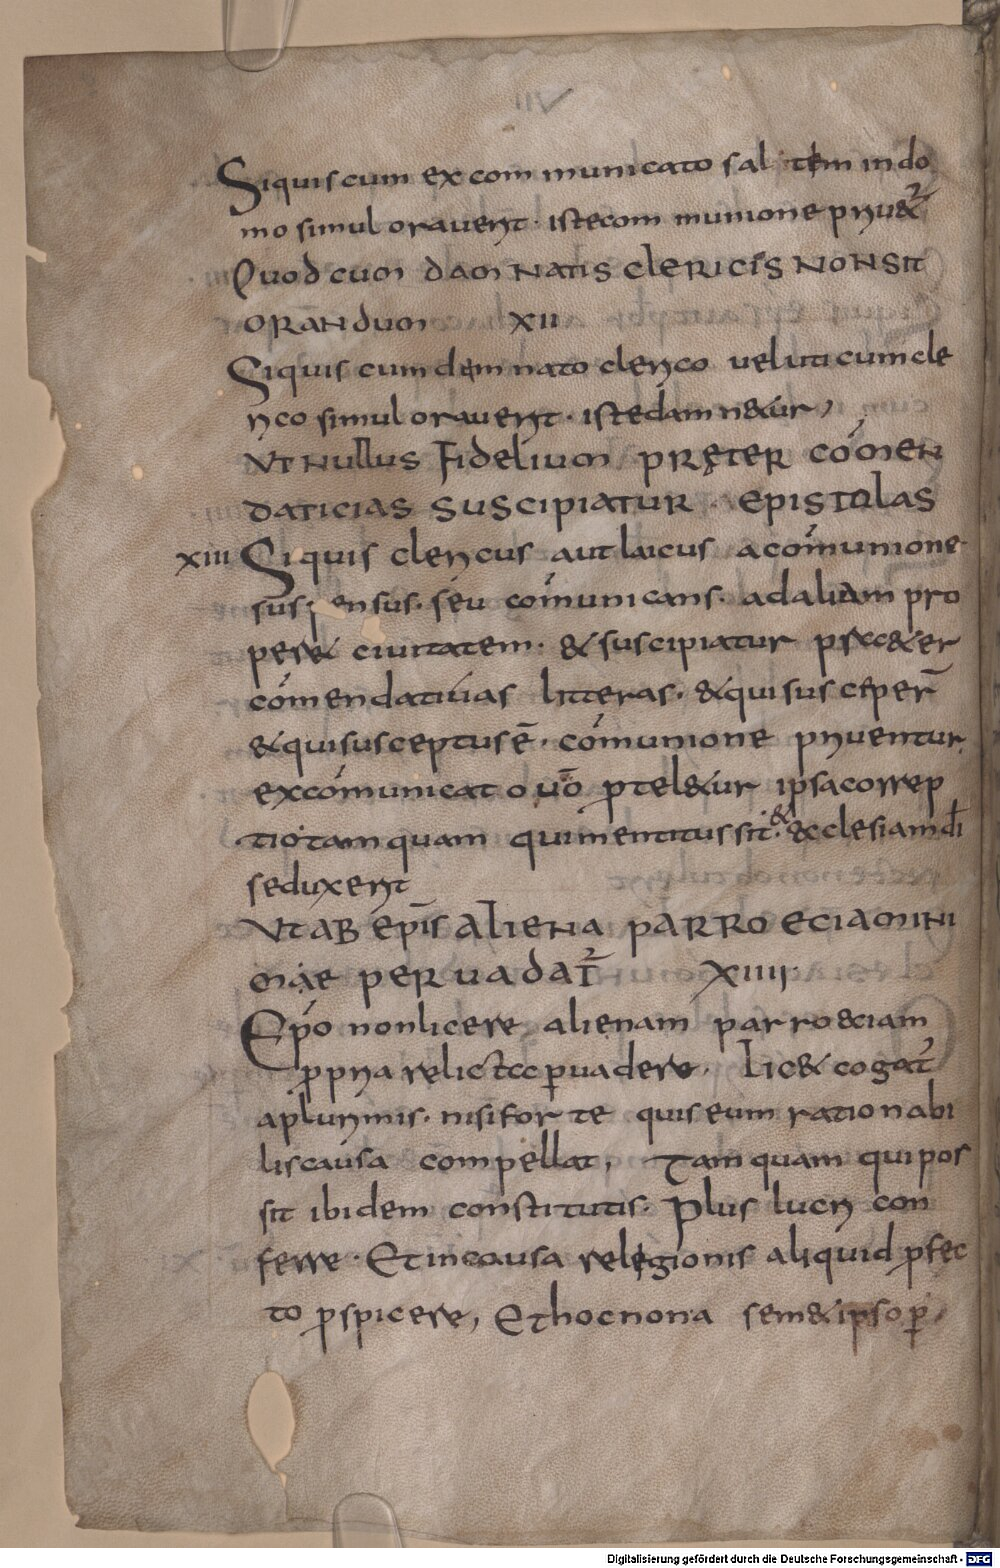 Siquis cum excommunicato saltem in do
mo simul oraverit· iste communione priv&ᷣ
Quod cum damnatis clericis non sit
orandum XII
Siquis cum damnato clerico veluti cum cle
rico simul oraverit· iste damn&ur,
Ut nullus fidelium pręter cōmen
daticias suscipiatur· epistolas
XIII Siquis clericus aut laicus a cōmunione
suspensus· seu cōmunicans· ad aliam pro
per& civitatem· & suscipiatur p̄ter
cōmendativas litteras· & qui susceper̄
& qui susceptus ē· cōmunione priventur
excōmunicato vō ꝓtel&ur ipsa correp
tio tamquam qui mentitus sit· & &cclesiam dī
seduxerit
Ut ab ep̄is aliena parroecia mini
mae pervadat᷑ XIIII·
Ep̄o non licere alienam parro&ciam
ꝓpria relicta ꝑvadere· Lic& cogat᷑
a plurimis· nisi forte quis eum rationabi
lis causa compellat, Tamquam qui pos
sit ibidem constitutis· Plus lucri con
ferre· Et in causa relegionis aliquid ꝓfec
to ꝓspicere, Et hoc non a sem& ipso ꝑ
Digitalisierung gefördert durch die Deutsche Forschungsgemeinschaft - DFG